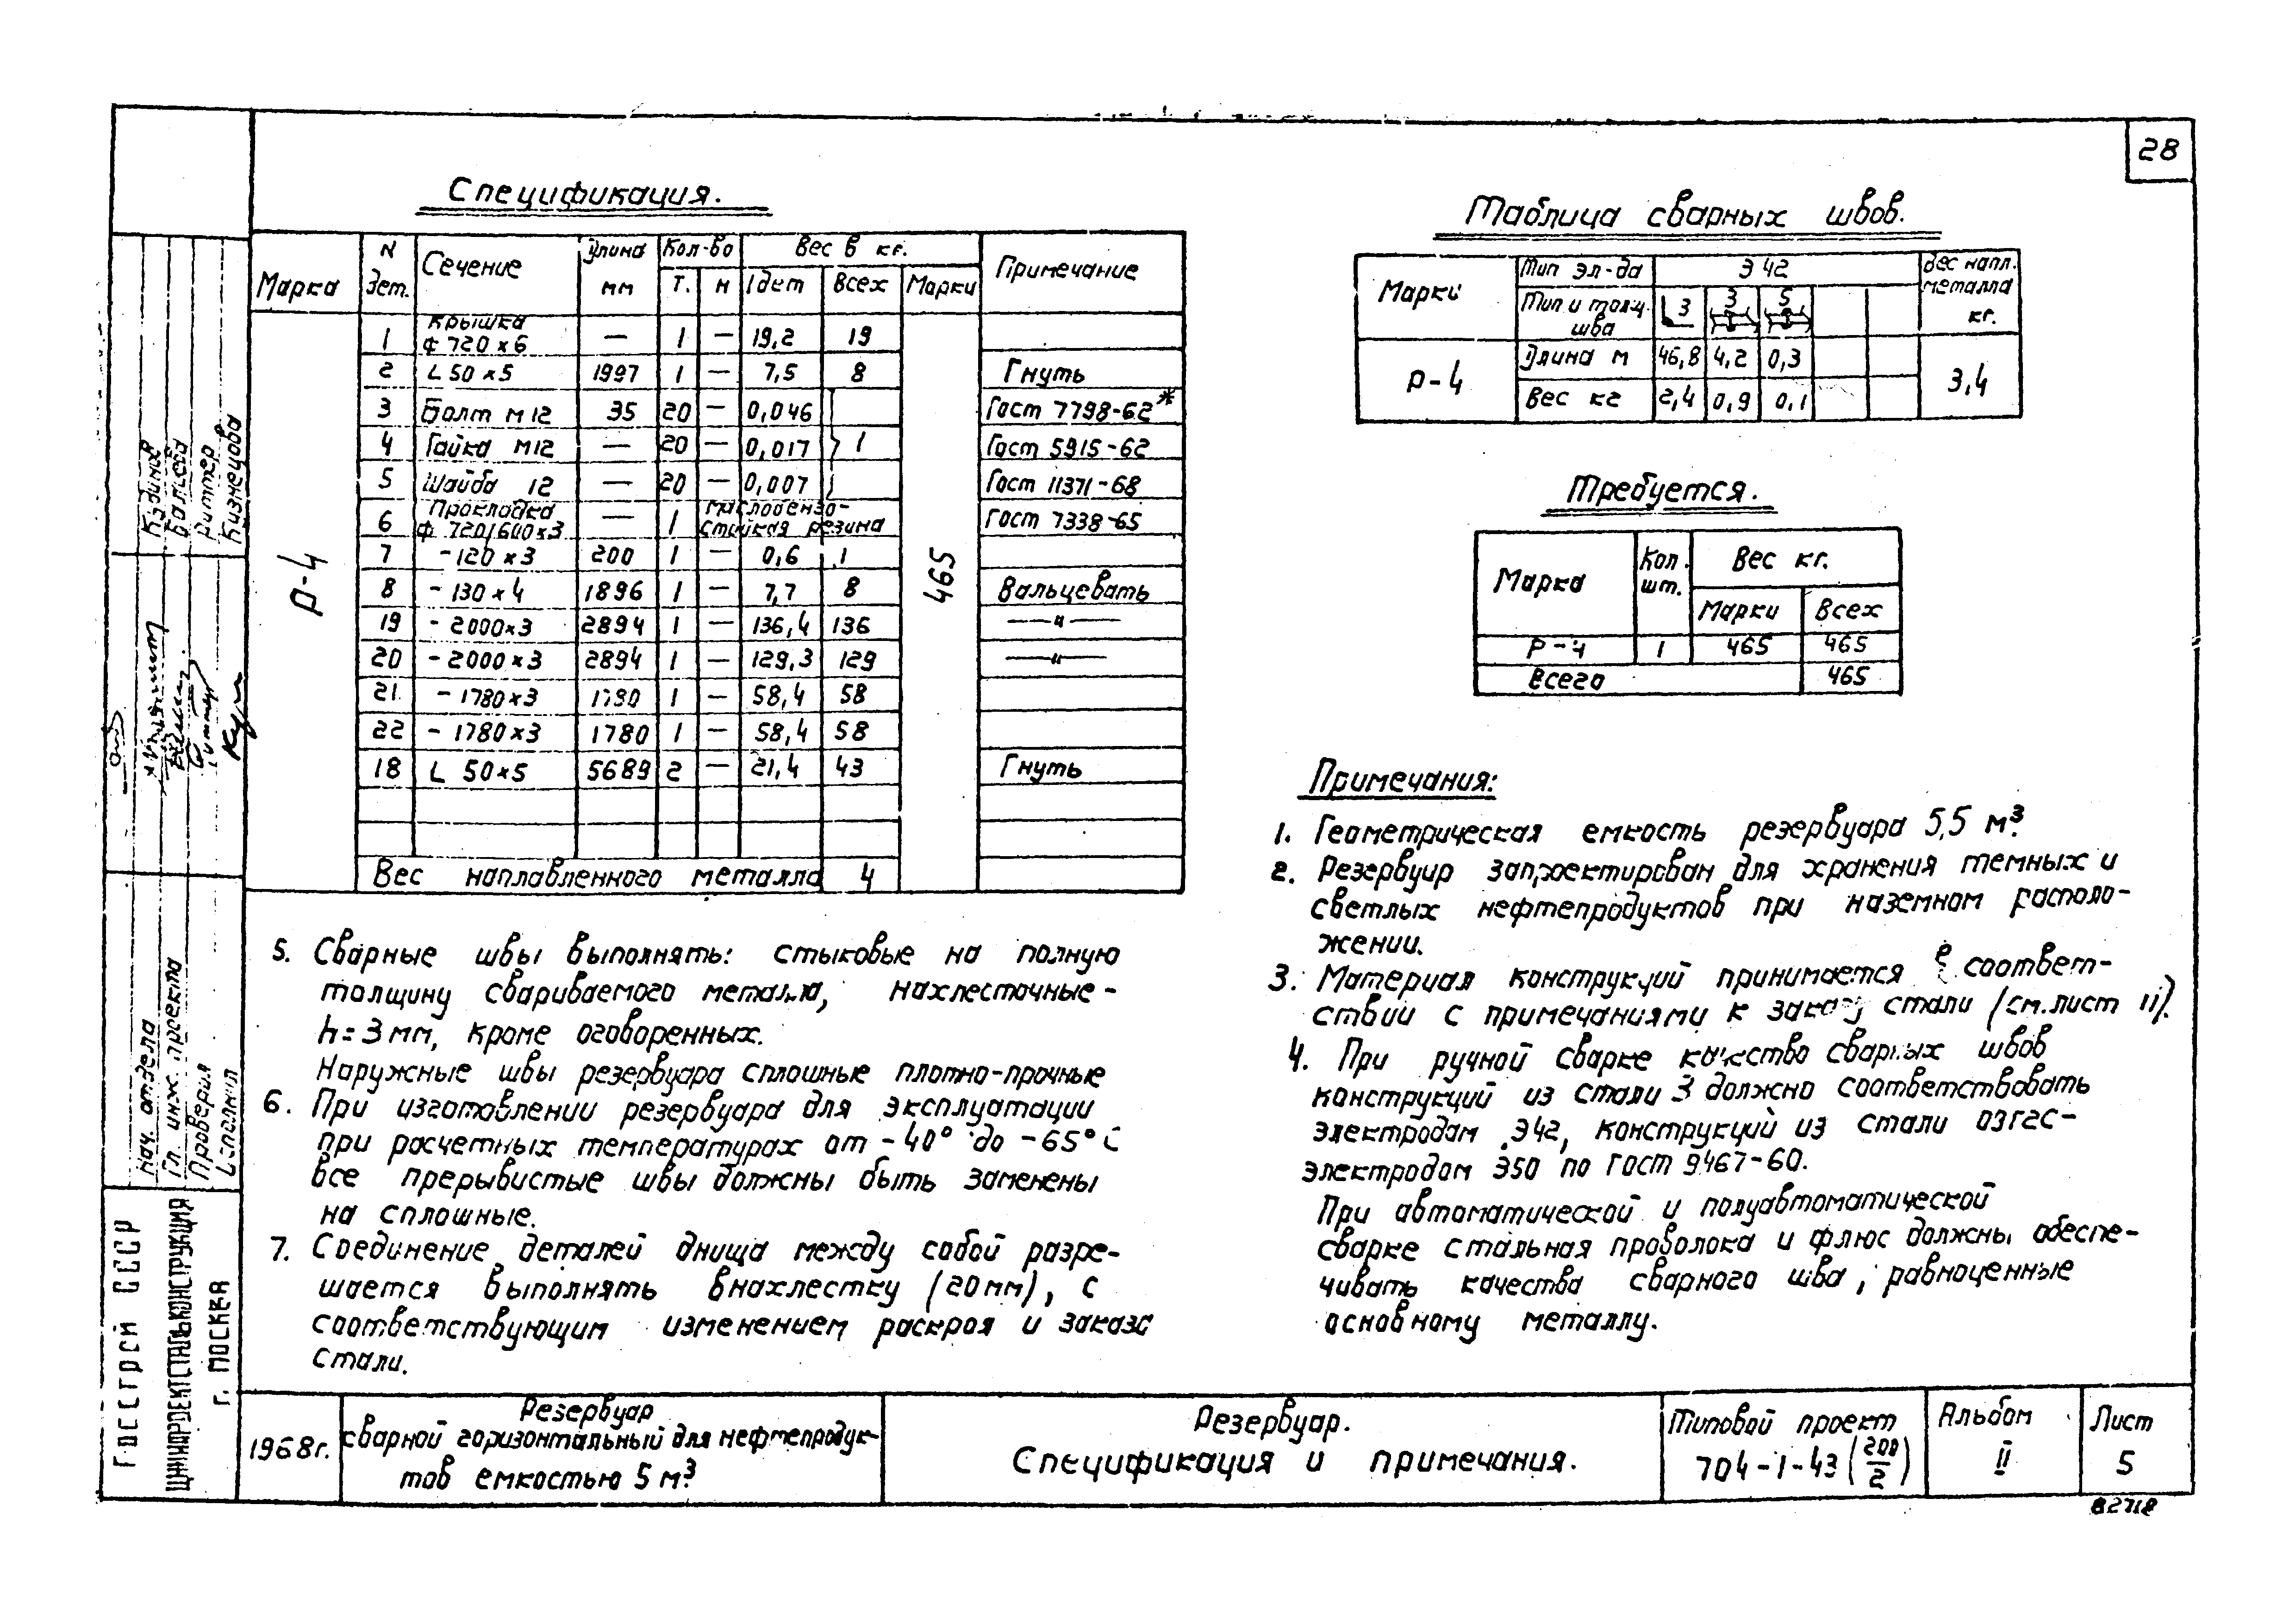 28
Спецификация.
Марка | N дет. | Сечение | Длина мм | Кол-во Т. | Н | Вес в кг. 1 дет | Всех | Марки | Примечание
Р-4 | 465
1 | Крышка ф 720 х 6 | — | 1 | — | 19,2 | 19
2 | L 50 х 5 | 1997 | 1 | — | 7,5 | 8 | Гнуть
3 | Болт М 12 | 35 | 20 | — | 0,046 | Гост 7798-62*
4 | Гайка М12 | — | 20 | — | 0,017 | 1 | Гост 5915-62
5 | Шайба 12 | — | 20 | — | 0,007 | Гост 11371-68
6 | Прокладка ф 720/600х3 | — | 1 | маслобензо- стойкая резина | Гост 7338-65
7 | - 120 х 3 | 200 | 1 | — | 0,6 | 1
8 | - 130 х 4 | 1896 | 1 | — | 7,7 | 8 | Вальцевать
19 | - 2000х3 | 2894 | 1 | — | 136,4 | 136 | —"—
20 | - 2000 х 3 | 2894 | 1 | — | 129,3 | 129 | —"—
21 | - 1780 х 3 | 1780 | 1 | — | 58,4 | 58
22 | - 1780 х 3 | 1780 | 1 | — | 58,4 | 58
18 | L 50х5 | 5689 | 2 | — | 21,4 | 43 | Гнуть
Вес наплавленного металла | 4
Таблица сварных швов.
Марки | Тип эл-да | Э 42 | Вес напл. металла кг.
Тип и толщ. шва | 3 | 3 | 5
Р-4 | Длина м | 46,8 | 4,2 | 0,3 | 3,4
Вес кг | 2,4 | 0,9 | 0,1
Требуется.
Марка | Кол. шт. | Вес кг.
Марки | Всех
Р-4 | 1 | 465 | 465
Всего | 465
Примечания:
1. Геометрическая емкость резервуара 5,5 м³.
2. Резервуар запроектирован для хранения темных и
светлых нефтепродуктов при наземном располо-
жении.
3. Материал конструкций принимается в соответ-
ствии с примечаниями к заказу стали (см. лист 11).
4. При ручной сварке качество сварных швов
конструкций из стали 3 должно соответствовать
электродам Э42, конструкций из стали 09Г2С-
электродам Э50 по Гост 9467-60.
При автоматической и полуавтоматической
сварке стальная проволока и флюс должны обеспе-
чивать качества сварного шва, равноценные
основному металлу.
5. Сварные швы выполнять: стыковые на полную
толщину свариваемого металла, нахлесточные -
h = 3 мм, кроме оговоренных.
Наружные швы резервуара сплошные плотно-прочные
6. При изготовлении резервуара для эксплуатации
при расчетных температурах от -40° до -65° С
все прерывистые швы должны быть заменены
на сплошные.
7. Соединение деталей днища между собой разре-
шается выполнять внахлестку (20 мм), с
соответствующим изменением раскроя и заказа
стали.
Нач. отдела
Гл. инж. проекта
Проверил
Исполнил
Риттер
Кузнецова
Госстрой СССР
ЦНИИПРОЕКТСТАЛЬКОНСТРУКЦИЯ
г. Москва
1968г.
Резервуар
сварной горизонтальный для нефтепродук-
тов емкостью 5 м³
Резервуар.
Спецификация и примечания.
Типовой проект
704-1-43 (200/2)
Альбом
II
Лист
5